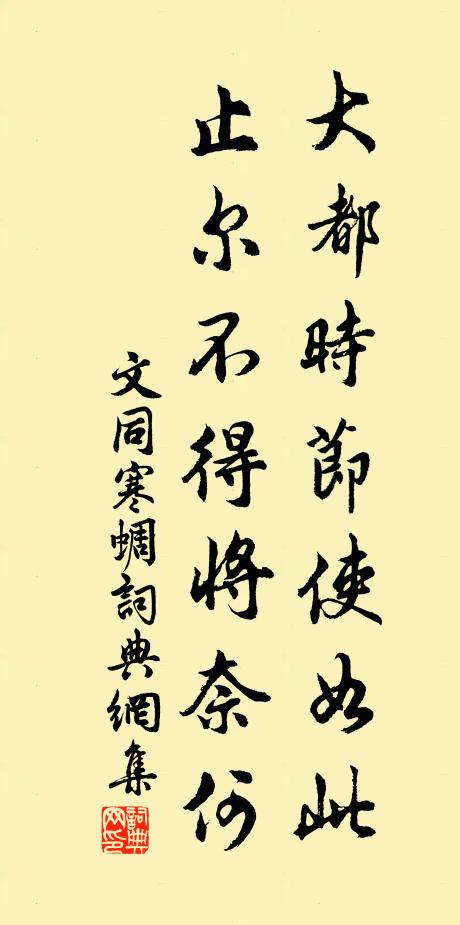 大都時節使如此
止尔不得将奈何
文同寒蜩詞典網集
詞典
网印